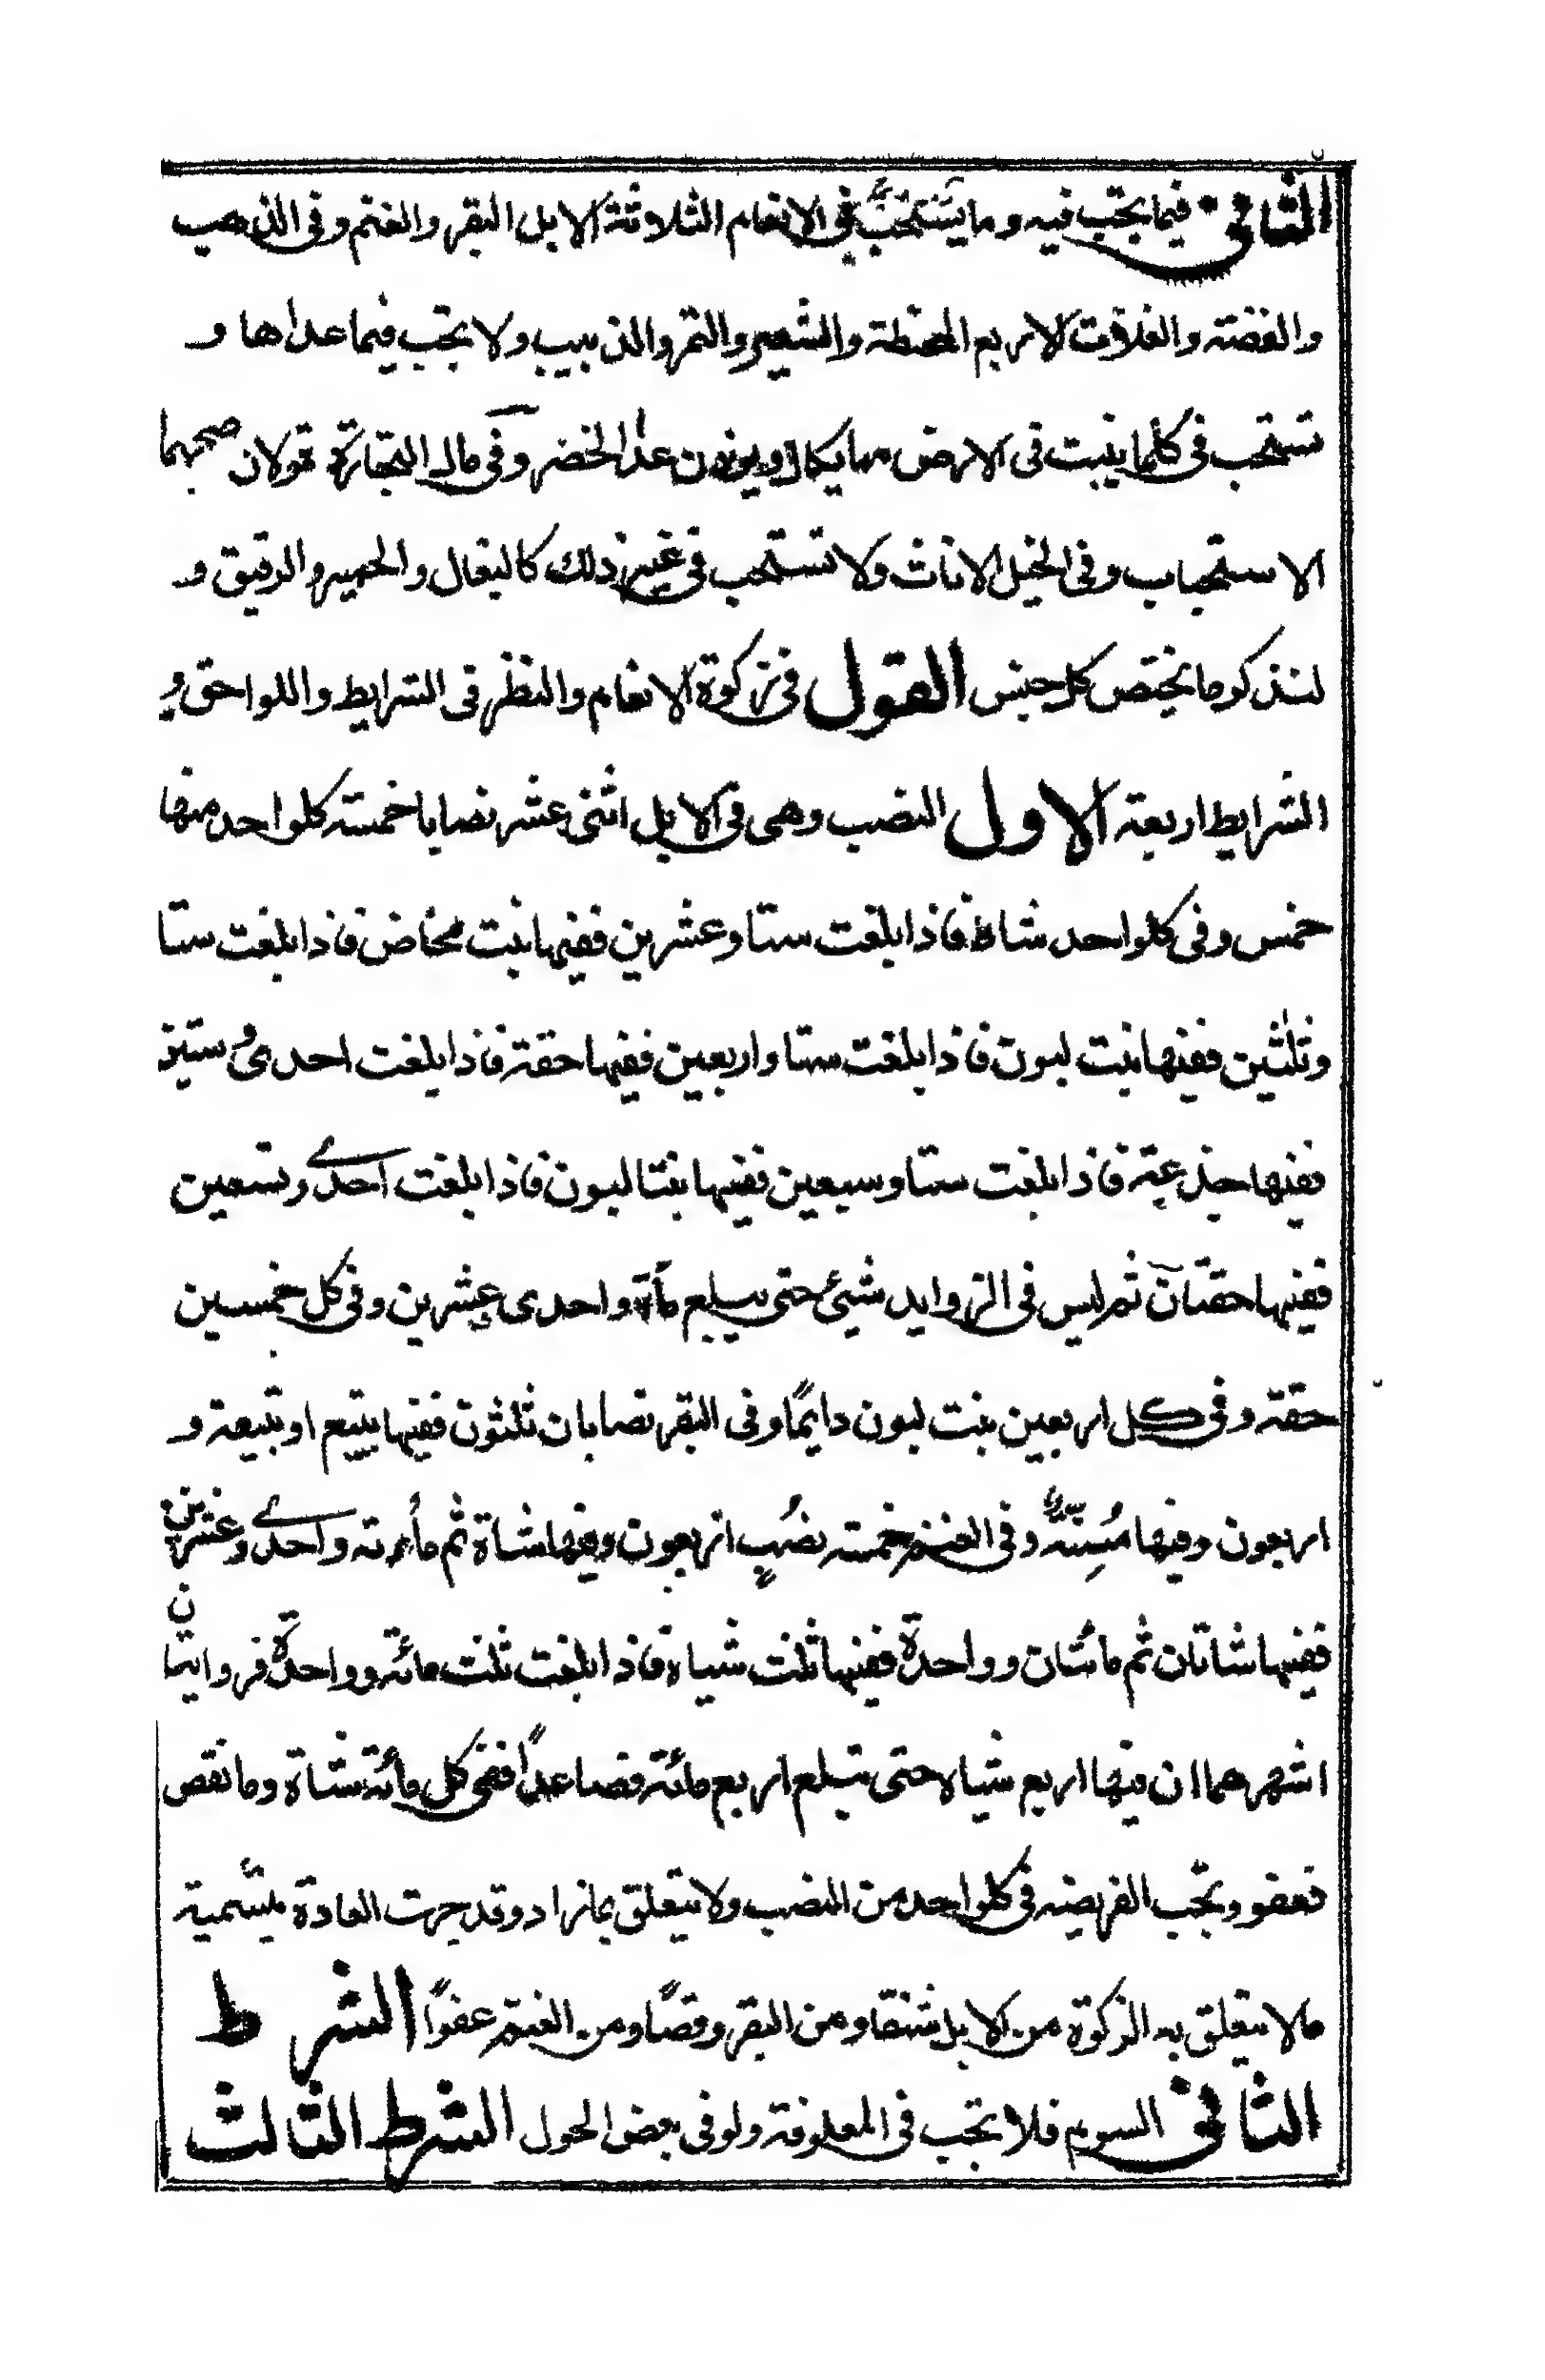 الثانى فيما يجب فيه وما يستحب تجب فى الانعام الثلاثة الابل البقر والغنم وفى الذهب
والفضته والغلات الاربع الحنطة والشعير والتمر والذبيب ولا يجب فيما عداها و
تستحب فى كلما ينبت فى الارض مما يكال او يوزن عدا الخضر وفى مال التجارة قولان صحهما
الاستحباب وفى الخيل الاناث ولا تستحب فى غير ذلك كالبغال والحمير والرقيق و
لنذكر ما يختص كل جنس القول فى زكوة الانعام والنظر فى الشرايط واللواحق و
الشرايط اربعة الاول النصب وهى فى الابل اثنى عشر نصابا خمسته كلواحد منها
خمس وفى كلواحد شاة فاذا بلغت ستا وعشرين ففيها بنت مخاض فاذا بلغت ستا
وثلثين ففيها بنت لبون فاذا بلغت ستا واربعين ففيها حقة فاذا بلغت احدى وستين
ففيها جذعة فاذا بلغت ستا وسبعين ففيها بنتا لبون فاذا بلغت احدى وتسعين
ففيها حقتان ثم ليس فى الزوايد شيئ حتى يبلغ مأة واحدى عشرين وفى كل خمسين
حقة وفى كل اربعين بنت لبون دايمًا وفى البقر نصابان ثلثون ففيها تبيع او تبيعة و
اربعون وفيها مُسِنّة وفى الغنم خمسته نصُبٍ اربعون وفيها شاة ثم مأئة واحدى وعشرين
ففيها شاتان ثم مائتان وواحدة ففيها ثلث شياة فاذا بلغت ثلث مائة وواحدة فروايتان
اشهرهما ان فيها اربع شياه حتى تبلغ اربع مائة فصاعدًا ففى كل مائة شاة وما نقص
فعفو وتجب الفريضه فى كلواحد من النصب ولا يتعلق بمازاد وقد جرت العادة بتسمية
مالا يتعلق به الزكوة من الابل شنقا ومن البقر وقصًا ومن الغنم عفوًا الشرط
الثانى السوم فلا تجب فى المعلوفة ولو فى بعض الحول الشرط الثالث